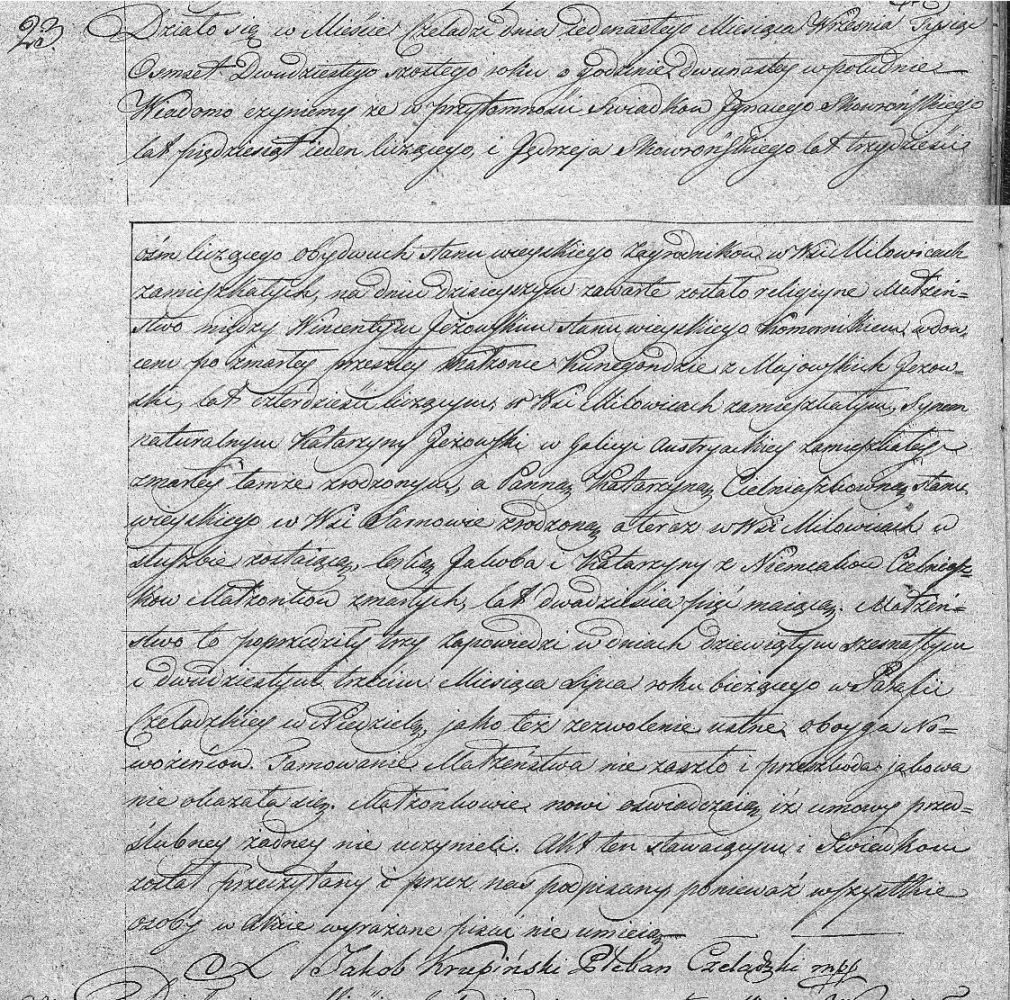 23 Działo się w Mieście Czeladzi dnia jedenastego Miesiąca Września Tysiąc
Osmset Dwudziestego szostego roku o godzinie dwunastey w południe
Wiadomo czyniemy że w przytomności Swiadkow Ignacego Skowrońskiego
lat pięćdziesiąt ieden liczącego, i Jędrzeja Skowrońskiego lat trzydzieści
ośm liczącego obydwuch stanu wieyskiego Zagrodnikow w Wsi Milowicach
zamieszkałych, na dniu dzisieyszym zawarte zostało religiyne Małżeń=
stwo między Wincentym Jeżowskim stanu wieyskiego komornikiem, wdow=
cem po zmarłey przeszłey małżonce Kunegondzie z Majowskich Jeżow=
ski, lat czterdzieści liczącym, w Wsi Milowicach zamieszkałym, Synem
naturalnym Katarzyny Jeżowski w Galicyi Austryackiey zamieszkałey
zmarłey tamże zrodzonym, a Panną Katarzyną Cielniaszkowną stanu
wieyskiego w Wsi Sarnowie zrodzoną a teraz w Wsi Milowicach w
służbie zostaiącą, córką Jakoba i Katarzyny z Niemcakow Cielniasz=
kow Małżonkow zmarłych, lat dwadzieścia pięć maiącą. Małżeń=
stwo to poprzedziły trzy zapowiedzi w dniach dziewiątym szesnastym
i dwudziestym trzecim Miesiąca Lipca roku bieżącego w Parafii
Czeladzkiey w Niedzielę, jako też zezwolenie ustne oboyga No=
wożeńcow. Tamowanie Małżeństwa nie zaszło i przeszkoda jakowa
nie okazała się. Małżonkowie nowi oswiadczaią iż umowy przed=
ślubney żadney nie uczynieli. Akt ten stawaiącym i Swiadkom
został przeczytany i przez nas podpisany ponieważ wszystkie
osoby w Akcie wyrażone pisać nie umieią
X Jakob Krupiński Pleban Czeladzki mpp